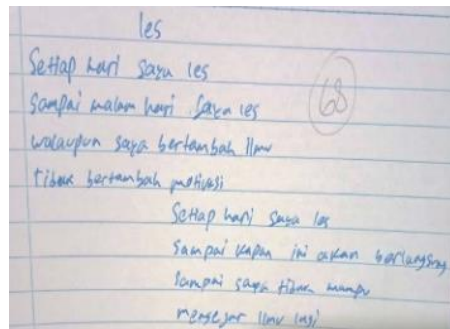 les
Setiap hari saya les
Sampai malam hari saya les
walaupun saya bertambah ilmu
tidak bertambah motivasi
68
Setiap hari saya les
Sampai kapan ini akan berlangsung
Sampai saya tidak mampu
mengejar ilmu lagi